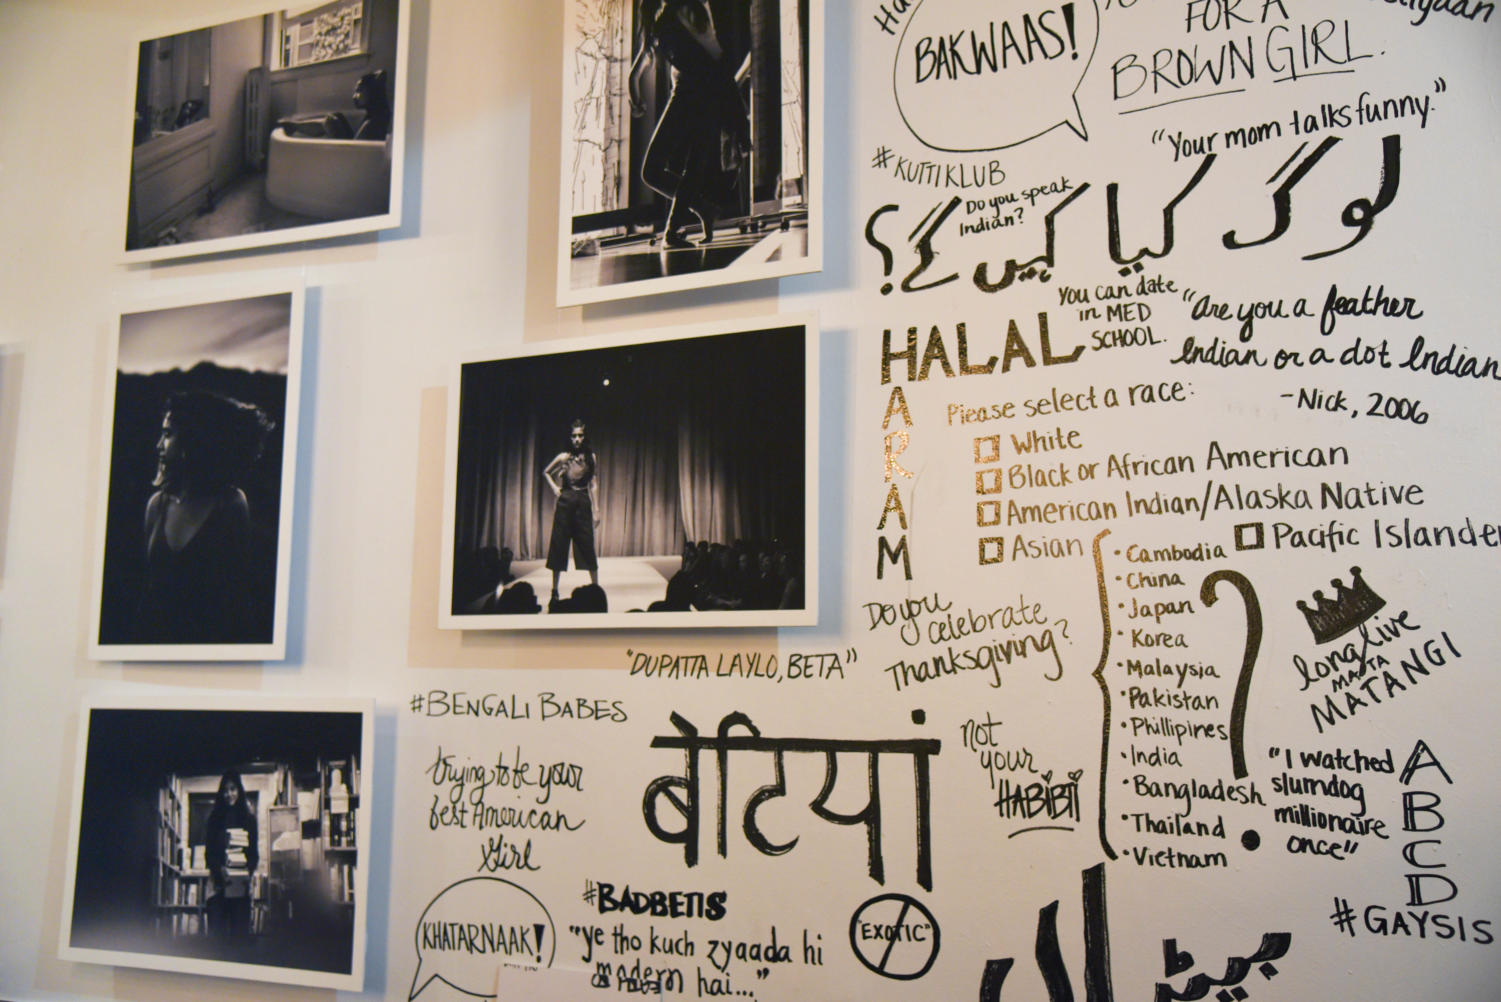 BAKWAAS!
FOR A
BROWN GIRL.
"Your mom talks funny."
#KUTTIKLUB
Do you speak
Indian?
لوگ کیا کہیں گے؟
You can date
in MED
SCHOOL.
"Are you a feather
Indian or a dot Indian
-Nick, 2006
HALAL
HARAM
Please select a race:
White
Black or African American
American Indian/Alaska Native
Asian
Pacific Islander
• Cambodia
• China
• Japan
• Korea
• Malaysia
• Pakistan
• Phillipines
• India
• Bangladesh
• Thailand
• Vietnam
?
Do you
celebrate
Thanksgiving?
long live
MATA
MATANGI
"DUPATTA LAYLO, BETA"
#BENGALI BABES
trying to be your
best American
Girl
बेटियां
not
your
HABIBTI
"I watched
slumdog
millionaire
once"
ABCD
#GAYSIS
KHATARNAAK!
#BADBETIS
"ye tho kuch zyaada hi
modern hai..."
"EXOTIC"
بیٹیاں